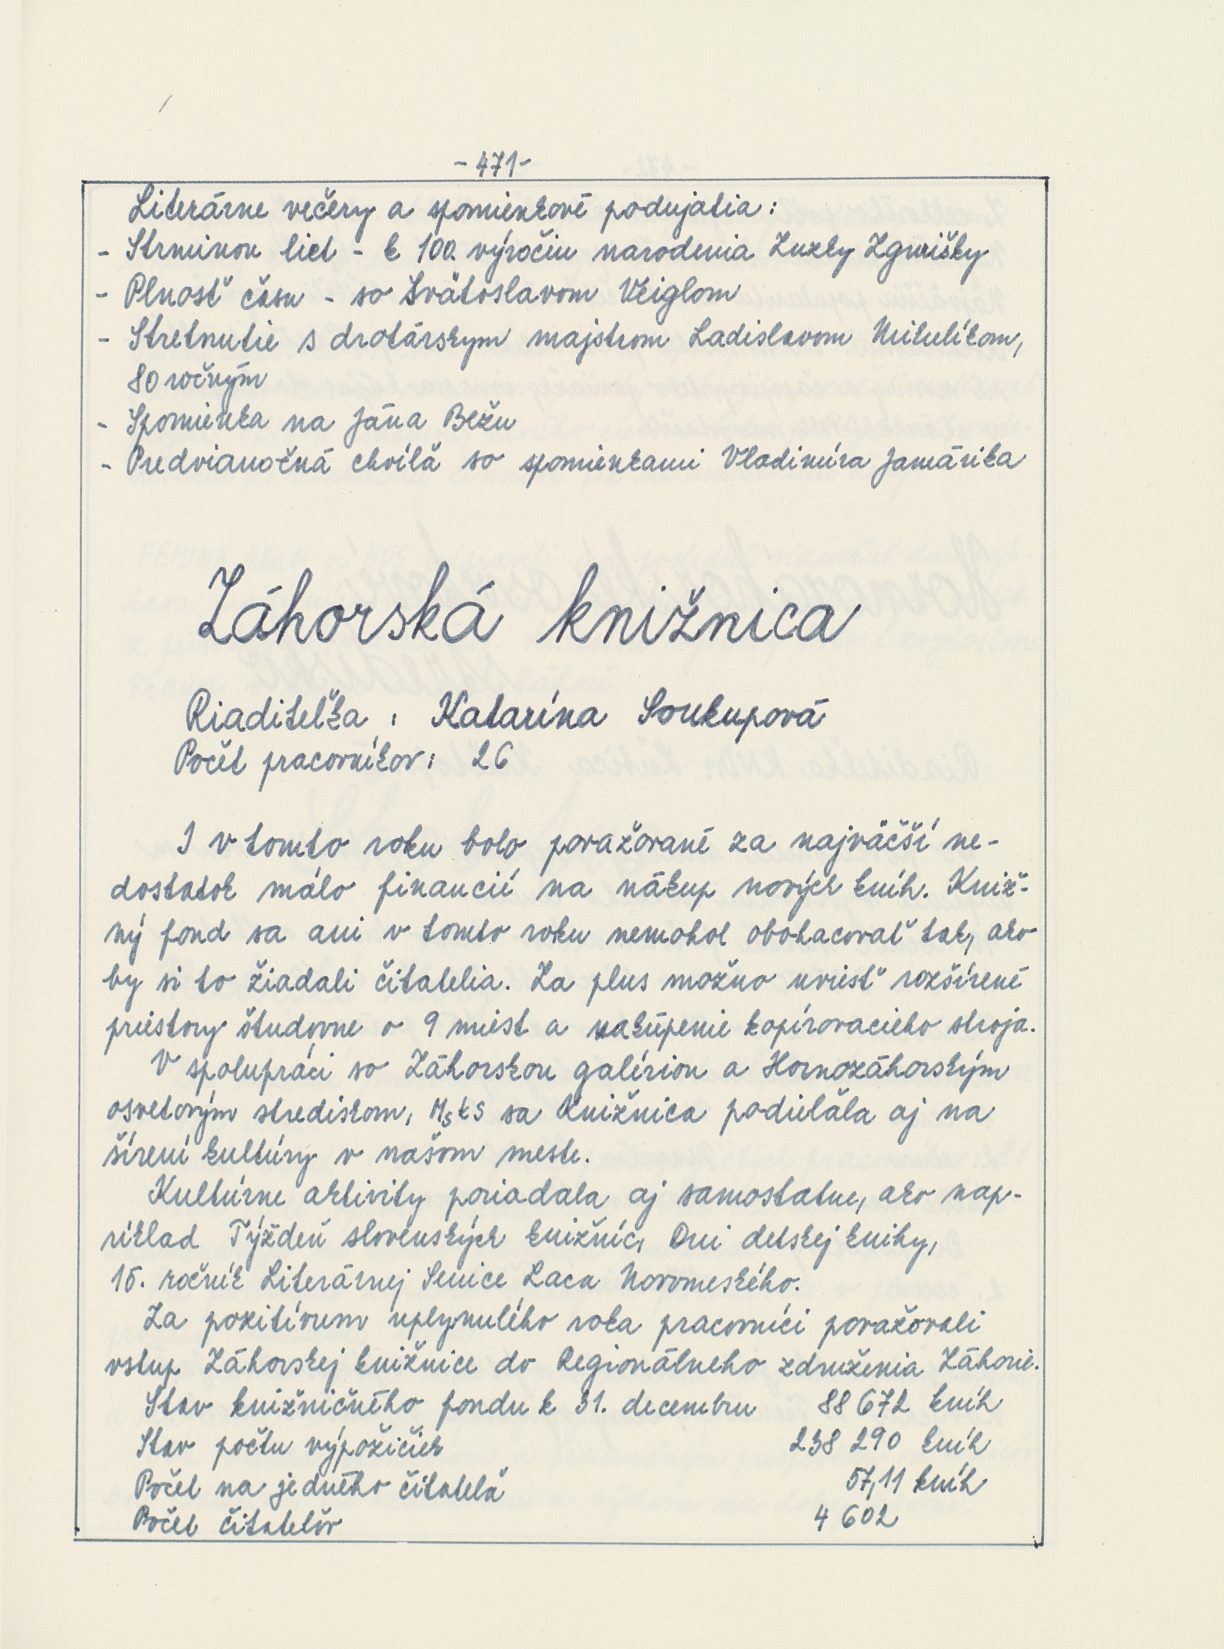 -471-
Literárne večery a spomienkové podujatia:
- Strminou liet - k 100. výročiu narodenia Zuzky Zgurišky
- Plnosť času - so Svätoslavom Veiglom
- Stretnutie s drotárskym majstrom Ladislavom Mikulíkom,
80 ročným
- Spomienka na Jána Bežu
- Predvianočná chvíľa so spomienkami Vladimíra Jamárika
Záhorská knižnica
Riaditeľka : Katarína Soukupová
Počet pracovníkov: 26
I v tomto roku bolo považované za najväčší ne-
dostatok málo financií na nákup nových kníh. Kniž-
ný fond sa ani v tomto roku nemohol obohacovať tak, ako
by si to žiadali čitatelia. Za plus možno uviesť rozšírené
priestory študovne o 9 miest a zakúpenie kopírovacieho stroja.
V spolupráci so Záhorskou galériou a Hornozáhorským
osvetovým strediskom, MsKS sa knižnica podieľala aj na
šírení kultúry v našom meste.
Kultúrne aktivity poriadala aj samostatne, ako nap-
ríklad Týždeň slovenských knižníc, Dni detskej knihy,
15. ročník Literárnej Senice Laca Novomeského.
Za pozitívum uplynulého roka pracovníci považovali
vstup Záhorskej knižnice do Regionálneho združenia Záhorie.
Stav knižničného fondu k 31. decembru 88 672 kníh
Stav počtu výpožičiek 238 290 kníh
Počet na jedného čitateľa 57,11 kníh
Počet čitateľov 4 602